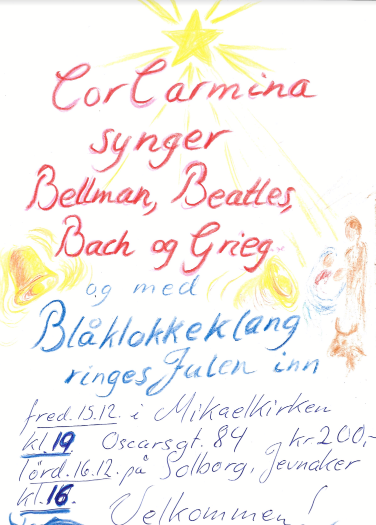 CorCarmina
synger
Bellman, Beatles,
Bach og Grieg
og med
Blåklokkeklang
ringes Julen inn
fred. 15.12. i Mikaelkirken
kl. 19 Oscarsgt. 84 kr 200,-
lörd. 16.12. på Solborg, Jevnaker
kl. 16.
Velkommen!